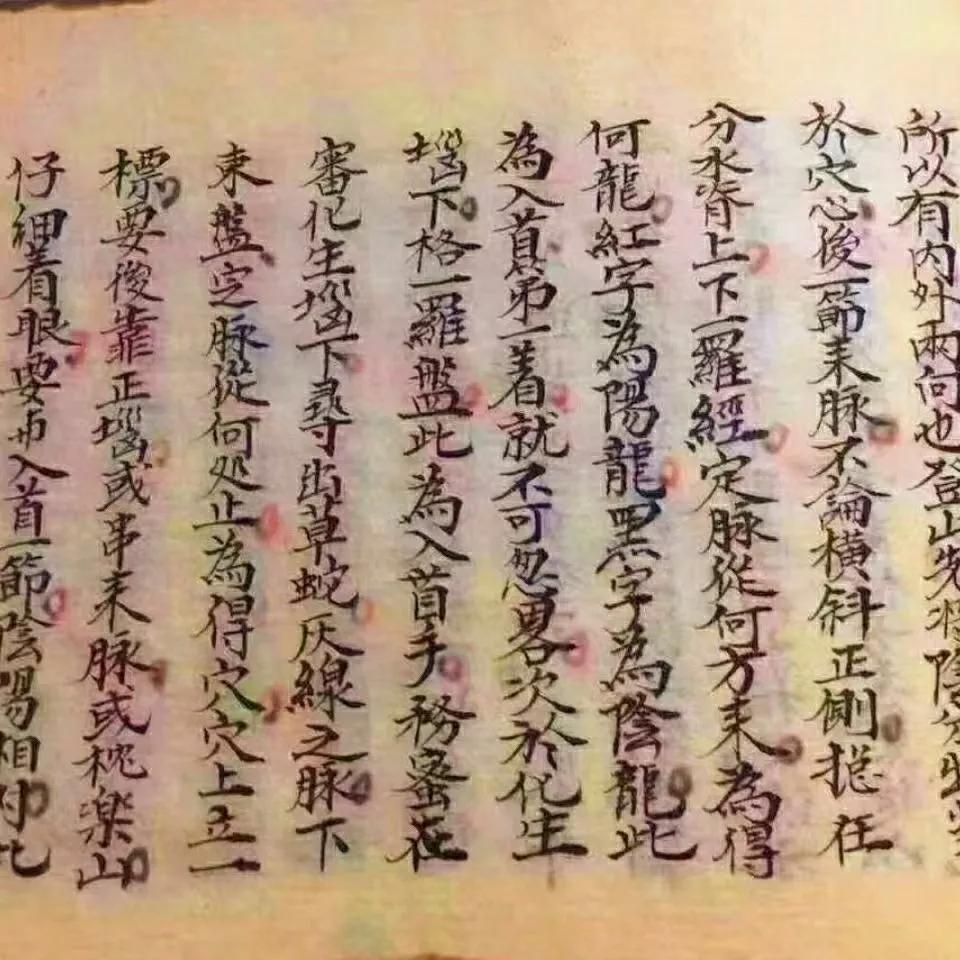 所以有内外兩向也登山先将陰分出
於穴心後一節耒脉不論橫斜正側揔在
分水脊上下一羅經定脉從何方耒為得
何龍紅字為陽龍黒字為陰龍此
為入首弟一着就不可忽畧次於化生
堖下格一羅盤此為入首手務蜜在
審化生堖下尋出草蛇灰線之脉下
東盤定脉從何処止為得穴穴上立一
標要後靠正堖或串耒脉或枕楽山
仔細着眼要与入首一節陰陽相対此